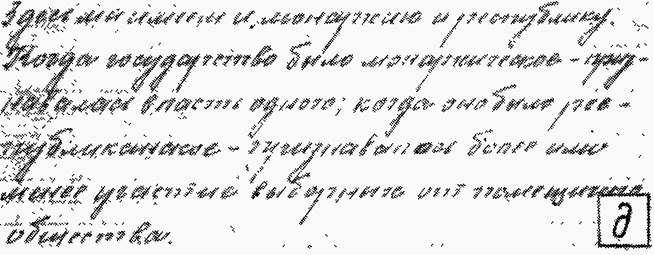 Здесь мы имеем и монархию и республику.
Когда государство было монархическое - приз-
навалась власть одного; когда оно было рес-
публиканское - признавалось более или
менее участие выборных от помещичье
общества.
д